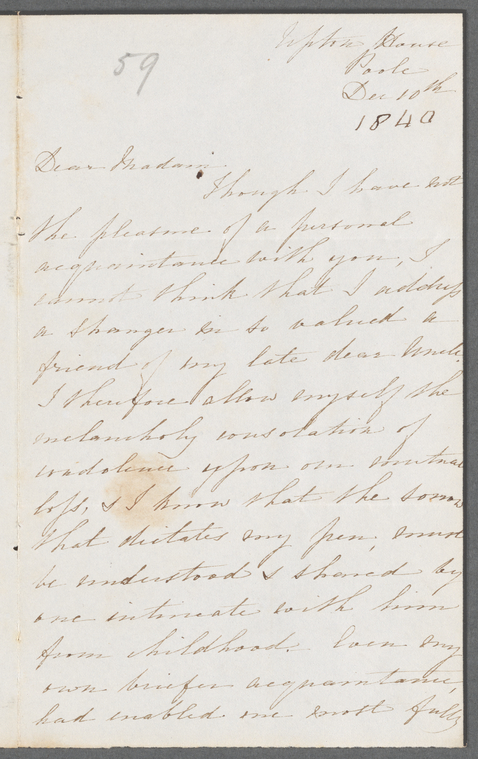 59
Upton House
Poole
Dec 10th
1840
Dear Madam
Though I have not
the pleasure of a personal
acquaintance with you, I
cannot think that I address
a stranger in so valued a
friend of my late dear Uncle.
I therefore allow myself the
melancholy consolation of
condolence upon our mutual
loss, & I know that the sorrow
that dictates my pen, must
be understood & shared by
one intimate with him
from childhood. Even my
own briefer acquaintance,
had enabled me most fully